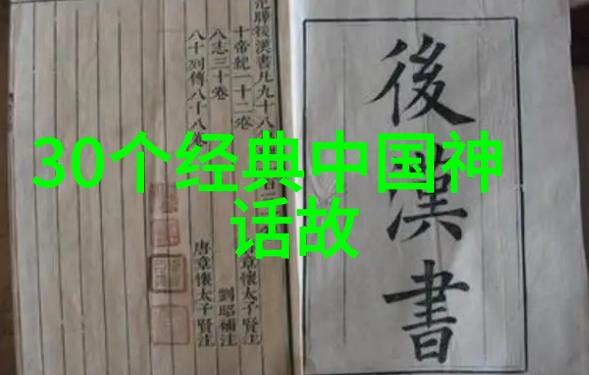 30个经典中国神
话故
後漢書
范曄後漢書凡九十八
十帝紀一十二卷
八志三十卷
八十列傳八十八卷
唐章懷太子賢注
劉昭補注
唐章懷太子賢注